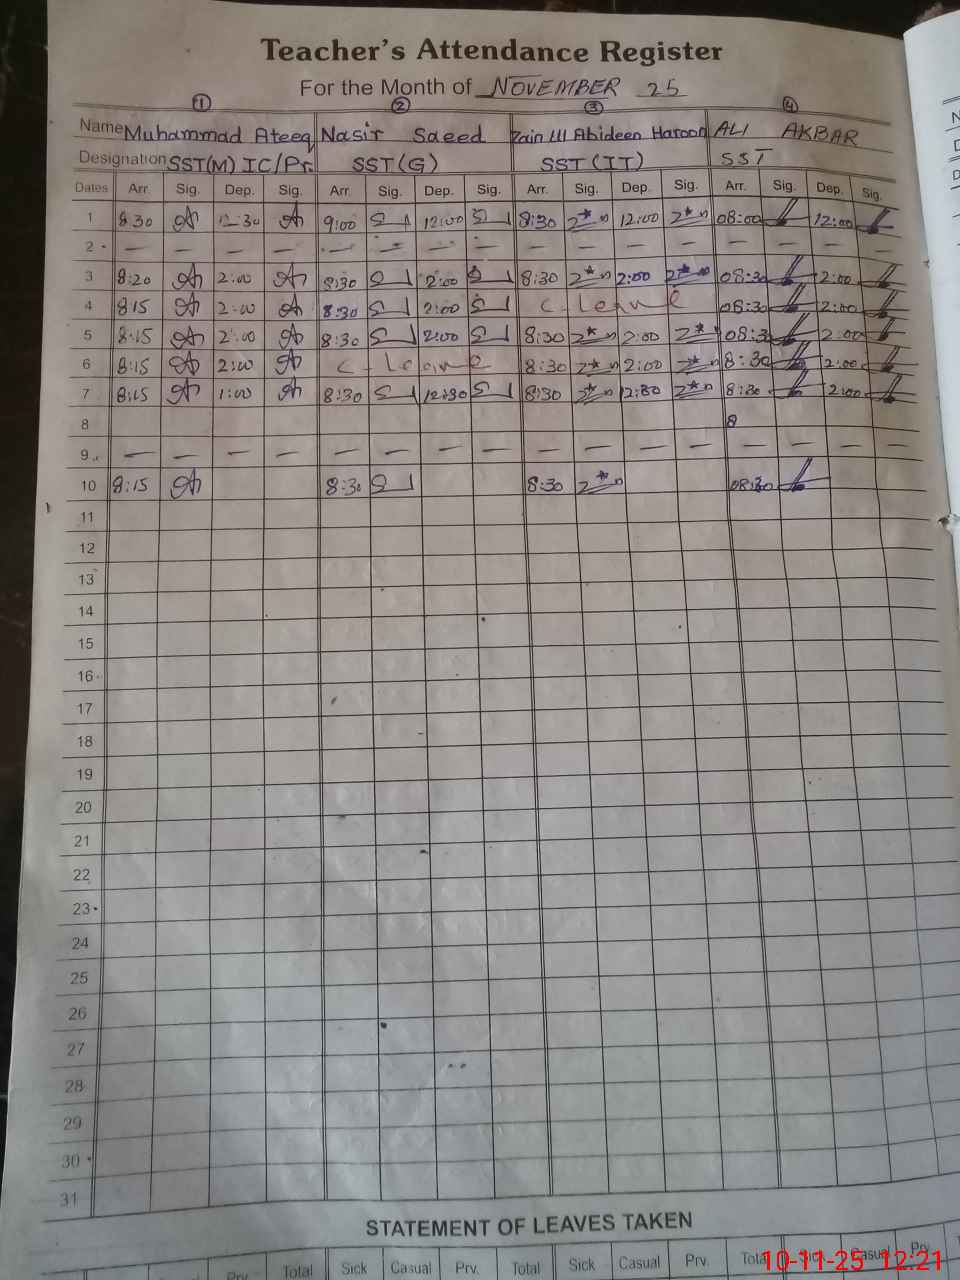 Teacher's Attendance Register
For the Month of NOVEMBER 25
1 2 3 4
Name Muhammad Ateeq Nasir Saeed Zain Ul Abideen Haroon ALI AKBAR
Designation SST(M) IC/Pr. SST(G) SST(IT) SST
Dates Arr. Sig. Dep. Sig. Arr. Sig. Dep. Sig. Arr. Sig. Dep. Sig. Arr. Sig. Dep. Sig.
1 8:30 12:30 9:00 12:00 8:30 12:00 08:00 12:00
2 — — — — — — — — — — — — — — — —
3 8:20 2:00 8:30 2:00 8:30 2:00 08:30 2:00
4 8:15 2:00 8:30 2:00 C. Leave 08:30 2:00
5 8:15 2:00 8:30 2:00 8:30 2:00 08:30 2:00
6 8:15 2:00 C. Leave 8:30 2:00 8:30 2:00
7 8:15 1:00 8:30 12:30 8:30 12:30 8:30 2:00
8 8
9 — — — — — — — — — — — — — — — —
10 8:15 8:30 8:30 08:30
11
12
13
14
15
16
17
18
19
20
21
22
23
24
25
26
27
28
29
30
31
STATEMENT OF LEAVES TAKEN
Prv. Total Sick Casual Prv. Total Sick Casual Prv. Total Sick Casual Prv.
10-11-25 12:21